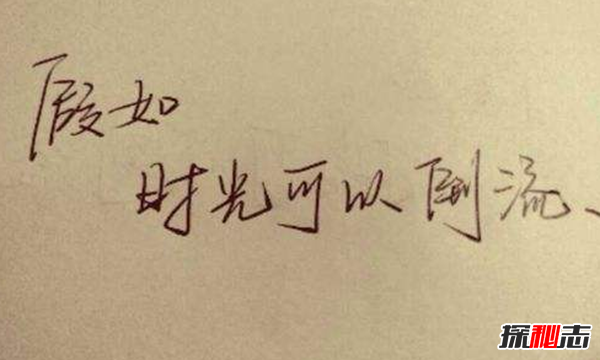 假如
时光可以倒流、
探秘志